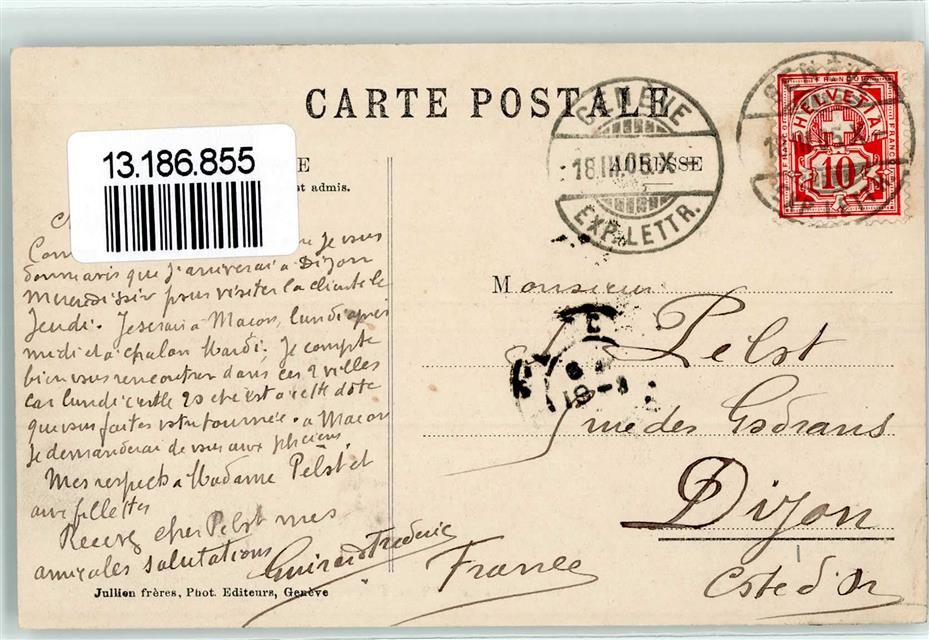 CARTE POSTALE
13.186.855
E
st admis.
ADRESSE
GENÈVE
18.III.05.X
EXP. LETTR.
FRANCO
HELVETIA
10
Je vous
donn avis que j'arriverai à Dijon
Mercredi soir pour visiter la clientele
Jeudi. Je serai à Macon, lundi après
midi et à Chalon Mardi, Je compte
bien vous rencontrer dans ces 2 villes
car lundi c'est le 20 et c'est à cette date
que vous faites votre tournée. à Macon
Je demanderai de vous aux
Mes respects à Madame Pelst et
aux fillettes
Recevez cher Pelst mes
amicales salutations
Frederic
Monsieur
Pelst
rue des Godrans
Dijon
Cote d'Or
France
Jullien frères, Phot. Editeurs, Genève